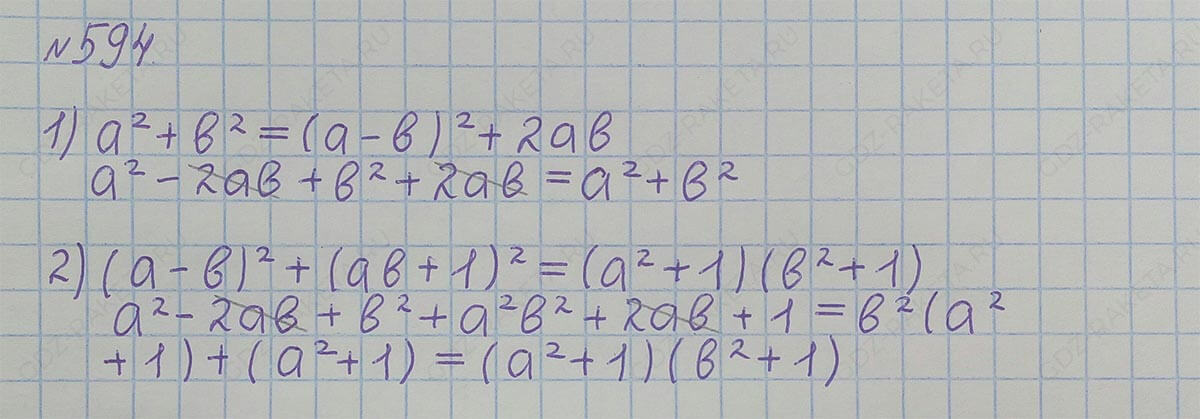 №594.
1) a² + b² = (a - b)² + 2ab
a² - 2ab + b² + 2ab = a² + b²
2) (a - b)² + (ab + 1)² = (a² + 1)(b² + 1)
a² - 2ab + b² + a²b² + 2ab + 1 = b²(a²
+ 1) + (a² + 1) = (a² + 1)(b² + 1)